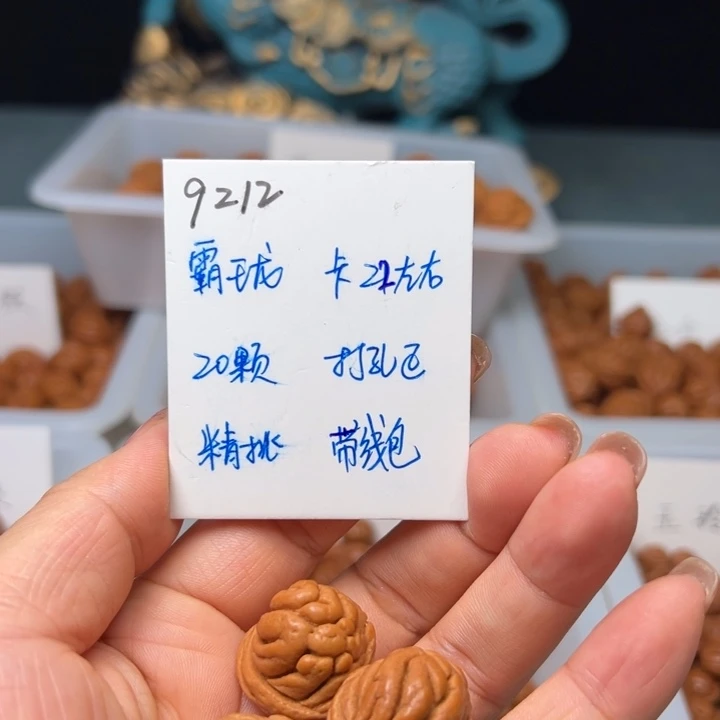 9212
霸王龙 卡21左右
20颗 打孔包
精挑 带线包